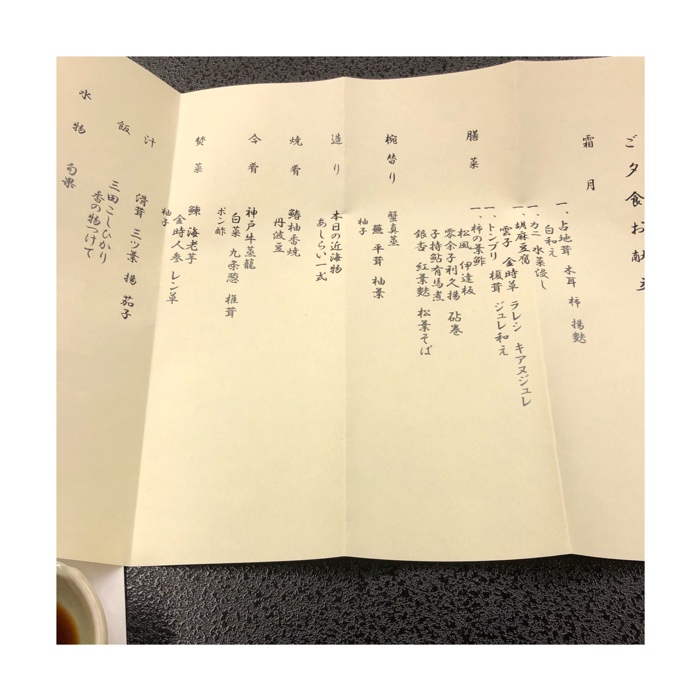 ご夕食お献立
霜月
膳菜
一、占地茸 木耳 柿 揚麩
白和え
一、カニ 水菜浸し
一、胡麻豆腐
雲子 金時草 ラレシ キアヌジュレ
一、トンブリ 榎茸 ジュレ和え
一、柿の葉鮓
松風 伊達板
零余子利久揚 砧巻
子持鮎有馬煮
銀杏 紅葉麩 松葉そば
椀替り
蟹真蒸
蕪 平茸 柚葉
柚子
造り
本日の近海物
あしらい一式
焼肴
鰆柚香焼
丹波豆
合肴
神戸牛蒸籠
白菜 九条葱 椎茸
ポン酢
焚菜
鰊 海老芋
金時人参 レン草
柚子
汁
滑茸 三ツ葉 揚 茄子
飯
三田こしひかり
香の物つけて
水物
旬果